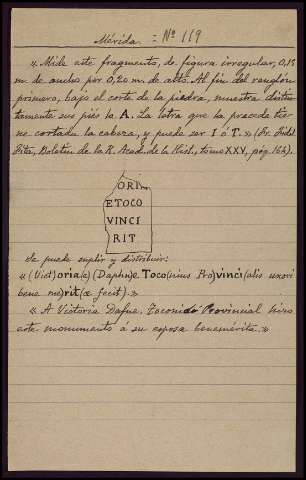 Mérida. = Nº 119
« Mide este fragmento, de figura irregular, 0,15
m. de ancho por 0,20 m. de alto. Al fin del renglón
primero, bajo el corte de la piedra, muestra distin-
tamente sus piés la A. La letra que la precede tie-
ne cortada la cabeza, y puede ser I ó T. » (Fr. Fidel
Fita, Boletin de la R. Acad. de la Hist., tomo XXV, pág. 164).
ORI
ETOCO
VINCI
RIT
Se puede suplir y distribuir:
« (Vict)oria(e) (Daphn)e Toco(nius Pro)vinci(alis uxori
bene me)rit(æ fecit). »
« A Victoria Dafne, Toconido Provincial hizo
este monumento á su esposa benemérita. »